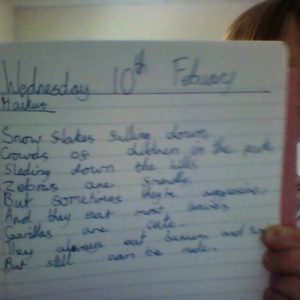 Wednesday 10th Febuary
Haikus
Snow flakes falling down
Crowds of children in the
Sleding down the hills
Zebras are
But sometimes they're aggressive
And they eat most
Gorillas are cute.
They always eat and
But still can be rude.